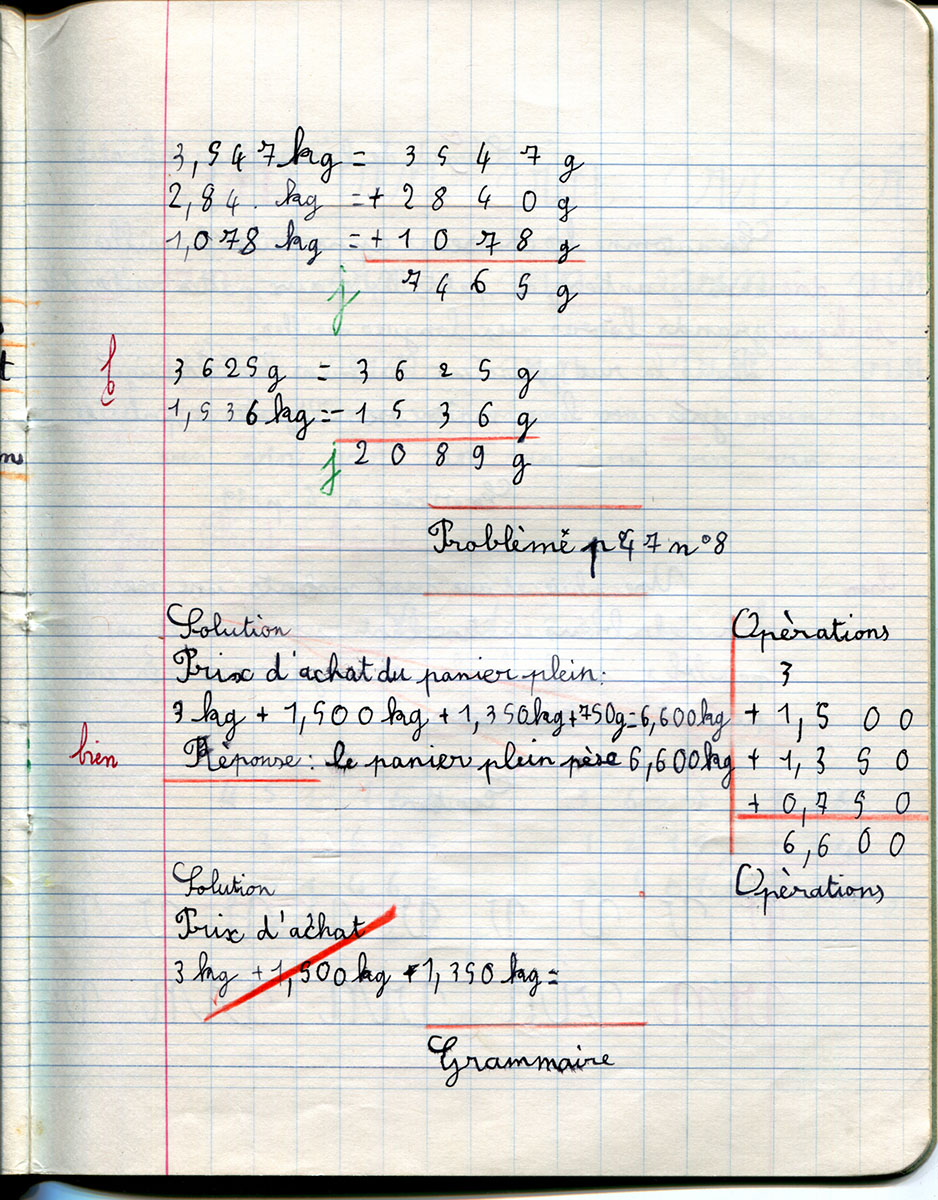 3,547 kg = 3547 g
2,84. kg = + 2840 g
1,078 kg = + 1078 g
j 7465 g
3625 g = 3625 g
1,536 kg = - 1536 g
j 2089 g
Problème p 47 n° 8
Solution
Prix d'achat du panier plein:
3 kg + 1,500 kg + 1,350 kg + 750 g = 6,600 kg
bien
Réponse: le panier plein pèse 6,600 kg
Opèrations
3
+ 1,500
+ 1,350
+ 0,750
6,600
Solution
Opèrations
Prix d'achat
3 kg + 1,500 kg + 1,350 kg =
Grammaire